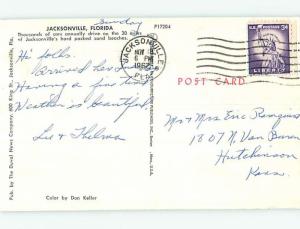 Sunday
JACKSONVILLE, FLORIDA
P17204
Thousands of cars annually drive on the 30 miles
of Jacksonville's hard packed sand beaches.
Hi folks.
Arrived here
Having a fine
Weather is beautiful
Lee & Thelma
Color by Don Keller
Pub. by The Duval News Company, 680 King St., Jacksonville, Fla.
JACKSONVILLE
6 PM
1962
FLA.
U.S. POSTAGE 3¢
LIBERTY
POST CARD
Mr & Mrs Eric
1807 N. Van Buren
Hutchinson
Kans.